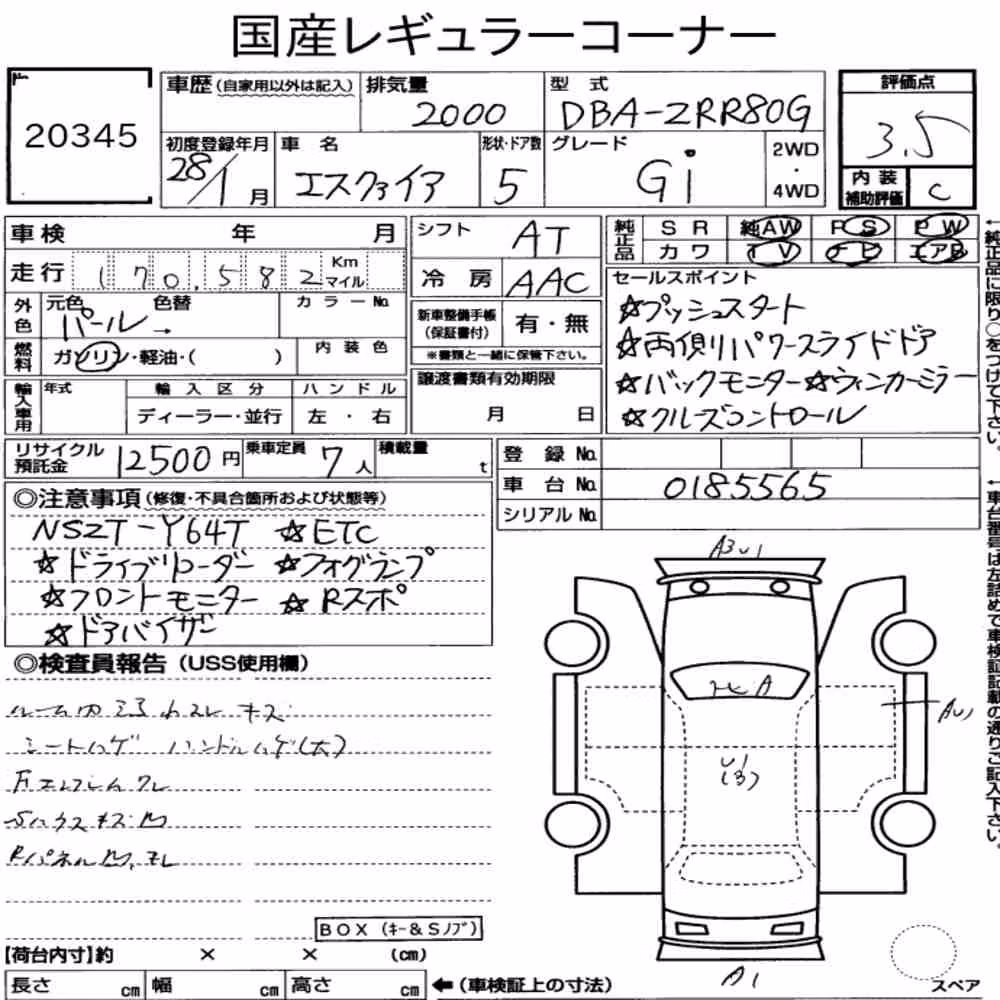 国産レギュラーコーナー
20345
車歴(自家用以外は記入)
排気量
2000
型 式
DBA-ZRR80G
評価点
3.5
初度登録年月
28/1月
車 名
エスクァイア
形状・ドア数
5
グレード
Gi
2WD
・
4WD
内装
補助評価
C
車検 年 月
走行 170,582 Km
マイル
外色
元色 色替 カラーNo.
パール →
燃料
ガソリン・軽油・( )
内装色
輸入車用
年式
輸入区分
ハンドル
ディーラー・並行
左 ・ 右
シフト
AT
冷房
AAC
新車整備手帳
(保証書付)
有・無
※書類と一緒に保管下さい。
譲渡書類有効期限
月 日
純正品
SR 純AW PS PW
カワ TV ナビ エアB
セールスポイント
☆プッシュスタート
☆両側パワースライドドア
☆バックモニター☆ウィンカーミラー
☆クルーズコントロール
←純正品に限り○をつけて下さい。
リサイクル
預託金
12500円
乗車定員
7人
積載量
t
登録No.
車台No.
0185565
シリアルNo.
←車台番号は左詰めで車検証記載の通りご記入下さい。
◎注意事項(修復・不具合箇所および状態等)
NSZT-Y64T ☆ETC
☆ドライブレコーダー ☆フォグランプ
☆フロントモニター ☆Rスポ
☆ドアバイザー
◎検査員報告(USS使用欄)
シートハゲ ハンドルハゲ(大)
A1
BOX(キー&Sノブ)
【荷台内寸】約 × × (cm)
長さ cm 幅 cm 高さ cm
←(車検証上の寸法)
スペア